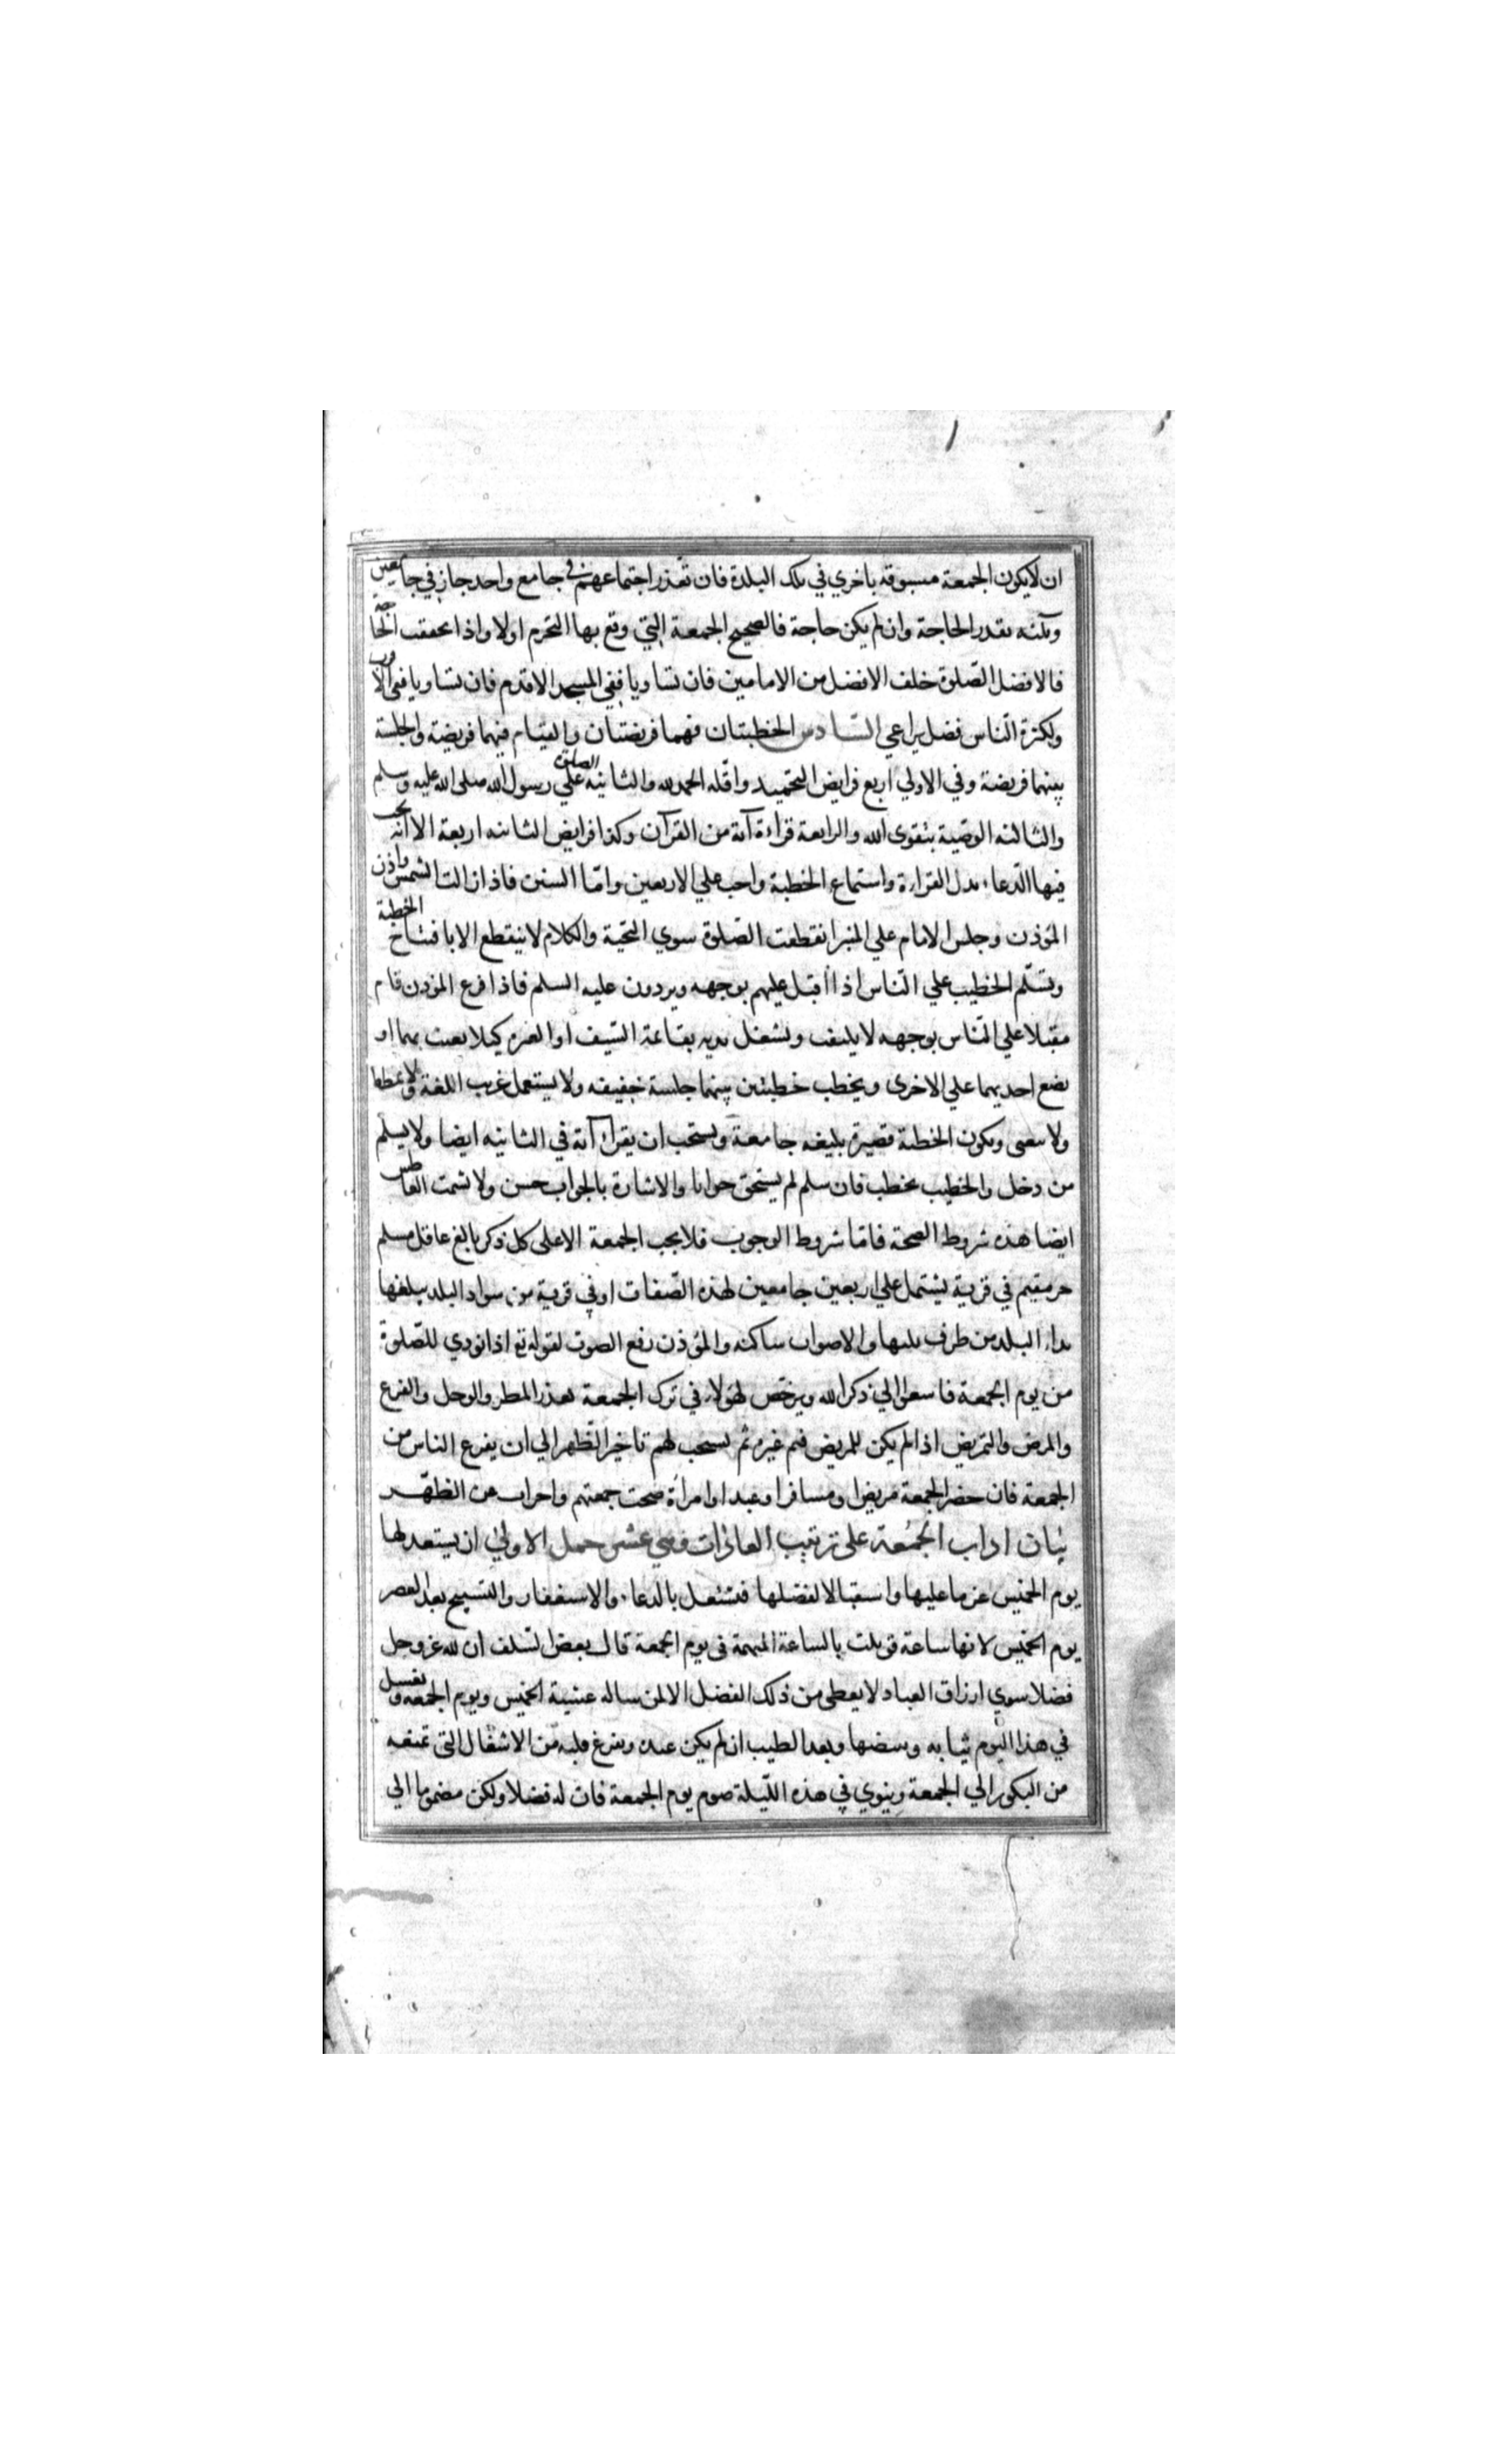 ان لا يكون الجمعة مسبوقة باخري في تلك البلدة فان تعذر اجتماعهم في جامع واحد جاز في جامعين
وثلثه بقدر الحاجة وان لم يكن حاجة فالصحيح الجمعة التي وقع بها التحرم اولا واذا تحققت الحاجة
فالافضل الصلوة خلف الافضل من الامامين فان تساويا ففي المسجد الاقدم فان تساويا ففي الاقرب
ولكثرة الناس فضل يراعي السادس الخطبتان فهما فريضتان والقيام فيهما فريضة والجلسة
بينهما فريضة وفي الاولي اربع فرايض التحميد واقله الحمد لله والثانيه الصلوة علي رسول الله صلى الله عليه وسلم
والثالثه الوصية بتقوى الله والرابعة قراءة آية من القرآن وكذا فرايض الثانيه اربعة الا انه يجب
فيها الدعاء بدل القراءة واستماع الخطبة واجب علي الاربعين واما السنن فاذا زالت الشمس واذن
المؤذن وجلس الامام علي المنبر انقطعت الصلوة سوي التحية والكلام لا ينقطع الا بافتتاح الخطبة
ويسلم الخطيب علي الناس اذا اقبل عليهم بوجهه ويردون عليه السلم فاذا فرغ المؤذن قام
مقبلا علي الناس بوجهه لا يلتفت ويشغل يديه بقاعة السيف او العنزة كيلا يعبث بهما او
يضع احديهما علي الاخرى ويخطب خطبتين بينهما جلسة خفيفه ولا يستعمل غريب اللغة ولا يمطط
ولا يتغنى ويكون الخطبة قصيرة بليغه جامعة ويستحب ان يقرأ آية في الثانيه ايضا ولا يسلم
من دخل والخطيب يخطب فان سلم لم يستحق جوابا والاشارة بالجواب حسن ولا يشمت العاطس
ايضا هذه شروط الصحة فاما شروط الوجوب فلا يجب الجمعة الا على كل ذكر بالغ عاقل مسلم
حر مقيم في قرية يشتمل علي اربعين جامعين لهذه الصفات او في قرية من سواد البلد يبلغها
نداء البلد من طرف يليها والاصوات ساكنه والمؤذن رفع الصوت لقوله تع اذا نودي للصلوة
من يوم الجمعة فاسعوا الي ذكر الله ويرخص لهؤلاء في ترك الجمعة لعذر المطر والوحل والفزع
والمرض والتمريض اذا لم يكن للمريض قيم غيره ثم يستحب لهم تاخير الظهر الي ان يفرغ الناس من
الجمعة فان حضر الجمعة مريض او مسافر او عبد او امرأة صحت جمعتهم واجزأت عن الظهر
بيان اداب الجمعة على ترتيب العادات وهي عشر جمل الاولى ان يستعد لها
يوم الخميس عزما عليها واستقبالا لفضلها فتشتغل بالدعاء والاستغفار والتسبيح بعد العصر
يوم الخميس لانها ساعة قوبلت بالساعة المبهمة في يوم الجمعة قال بعض السلف ان لله عز وجل
فضلا سوي ارزاق العباد لا يعطي من ذلك الفضل الا لمن ساله عشية الخميس ويوم الجمعه ويغسل
في هذا اليوم ثيابه ويبيضها ويعد الطيب ان لم يكن عنده ويفرغ قلبه من الاشغال التي تمنعه
من البكور الي الجمعة وينوي في هذه الليلة صوم يوم الجمعة فان له فضلا ولكن مضموما الي